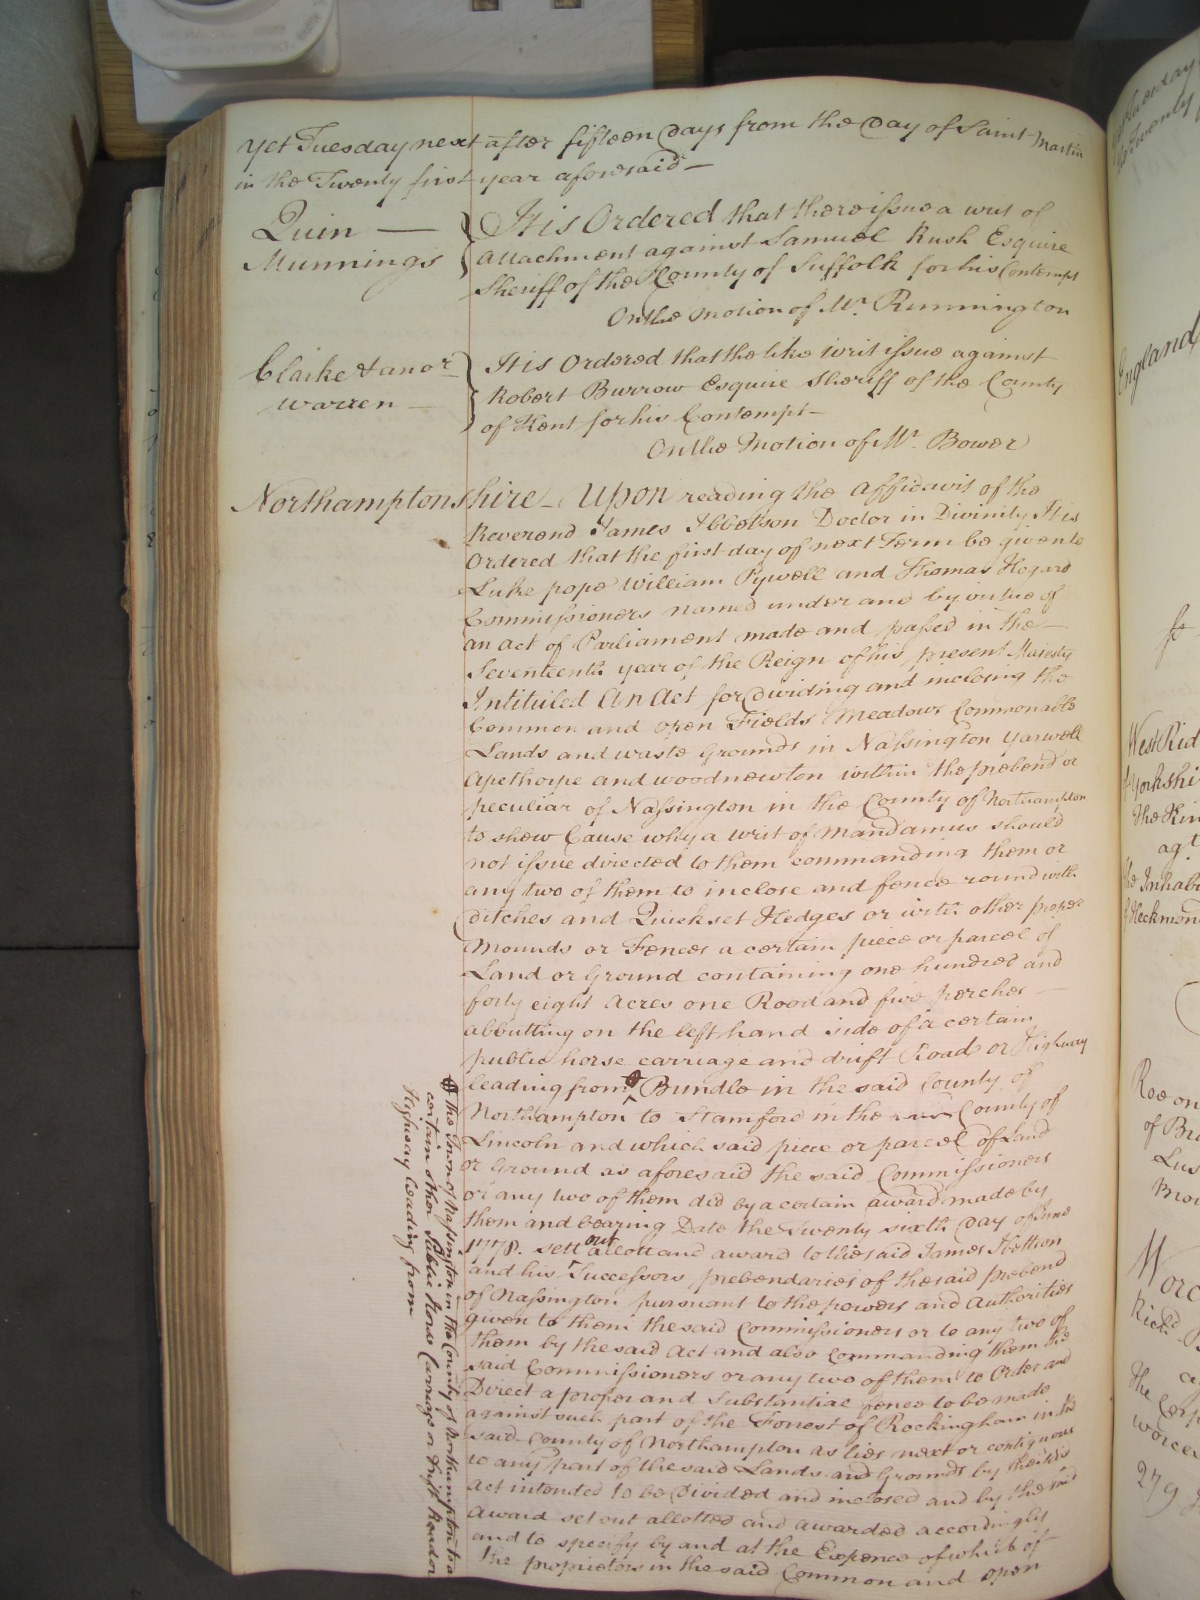 Yet Tuesday next after fifteen Days from the Day of Saint Martin
in the Twenty first year aforesaid —
Quin —
Munnings
It is Ordered that there issue a writ of
Attachment against Samuel Rush Esquire
Sheriff of the County of Suffolk for his Contempt
On the Motion of Mr. Runnington
Clarke & anor
Warren —
It is Ordered that the like Writ issue against
Robert Burrow Esquire Sheriff of the County
of Kent for his Contempt —
On the Motion of Mr. Bower
Northamptonshire — Upon reading the Affidavit of the
Reverend James Ibbetson Doctor in Divinity It is
Ordered that the first day of next Term be given to
Luke pope William Pywell and Thomas Hogard
Commissioners named under and by virtue of
an act of Parliament made and passed in the —
Seventeenth year of the Reign of his present Majesty
Intituled An Act for Dividing and inclosing the
Common and open Fields Meadows Commonable
Lands and waste Grounds in Nassington Yarwell
Apethorpe and Woodnewton within the prebend or
peculiar of Nassington in the County of Northampton
to shew Cause why a writ of Mandamus should
not issue directed to them commanding them or
any two of them to inclose and fence round with
Ditches and Quickset Hedges or with other proper
Mounds or Fences a certain piece or parcel of
Land or Ground containing one hundred and
forty eight Acres one Rood and five perches —
abbutting on the left hand side of a certain
public horse carriage and drift Road or Highway
leading from Bundle in the said County of
Northampton to Stamford in the County of
Lincoln and which said piece or parcel of Land
or Ground as aforesaid the said Commissioners
or any two of them did by a certain award made by
them and bearing Date the Twenty sixth Day of June
1778. sett out allott and award to the said James Ibettson
and his Successors prebendaries of the said prebend
of Nassington pursuant to the powers and Authorities
given to them the said Commissioners or to any two of
them by the said Act and also Commanding them the
said Commissioners or any two of them to Order and
Direct a proper and Substantial fence to be made
against such part of the Forrest of Rockingham in the
said County of Northampton as lies next or contiguous
to any part of the said Lands and Grounds by the
Act intended to be Divided and inclosed and by the said
Award set out allotted and awarded accordingly
and to specify by and at the Expence of which of
the proprietors in the said Common and open
the Town of Nassington in the County of Northampton to a
certain other Public Horse Carriage or Drift Road or
Highway leading from
England
West Rid
Yorkshi
the Kin
agt
the Inhabi
Heckmond
Roe on
of Br
Lus
Worc
Rich
The Corp
worces
279